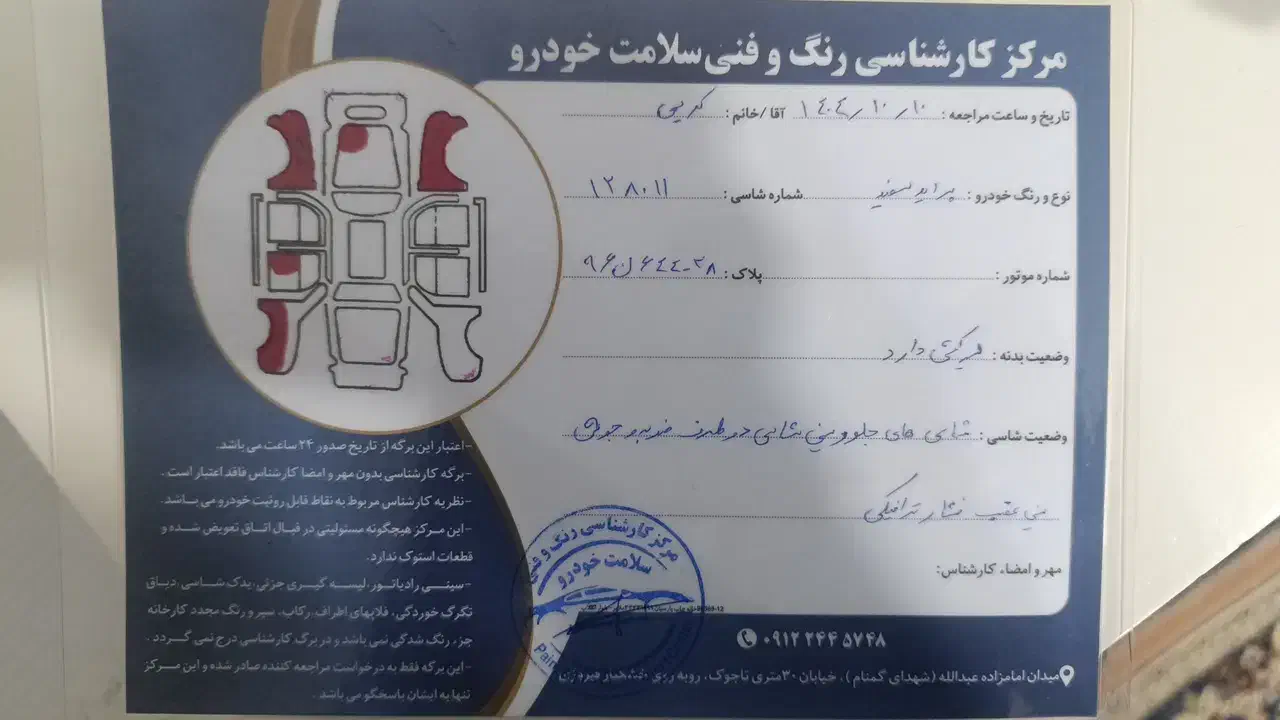 مرکز کارشناسی رنگ و فنی سلامت خودرو
تاریخ و ساعت مراجعه : ۱۴۰۴/۱۰/۱۰ آقا /خانم : کریمی
نوع و رنگ خودرو : پراید سفید شماره شاسی : ۱۲۸۰۱۱
شماره موتور : پلاک : ۳۸-۶۴۴ ل ۹۶
وضعیت بدنه : لیرگیری دارد
وضعیت شاسی : شاسی های جلو و سینی شاسی دو طرف ضربه و جوش
سینی عقب فشار ترافیکی
مهر و امضاء کارشناس:
-اعتبار این برگه از تاریخ صدور ۲۴ ساعت می باشد.
-برگه کارشناسی بدون مهر و امضا کارشناس فاقد اعتبار است .
-نظریه کارشناس مربوط به نقاط قابل رونیت خودرو می باشد .
-این مرکز هیچگونه مسئولیتی در قبال اتاق تعویض شده و
قطعات استوک ندارد.
-سینی رادیاتور، لیسه گیری جزئی، یدک شاسی ،دیاق
تگرگ خوردگی ، قلابهای اطراف، رکاب، سپر و رنگ مجدد کارخانه
جزء رنگ شدگی نمی باشد و در برگ کارشناسی درج نمی گردد .
-این برگه فقط به درخواست مراجعه کننده صادر شده و این مرکز
تنها به ایشان پاسخگو می باشد .
مرکز کارشناسی رنگ و فنی
سلامت خودرو
۰۹۱۲ ۲۴۴ ۵۷۴۸
میدان امامزاده عبدالله (شهدای گمنام ) ، خیابان ۳۰متری تاجوک، روبه روی